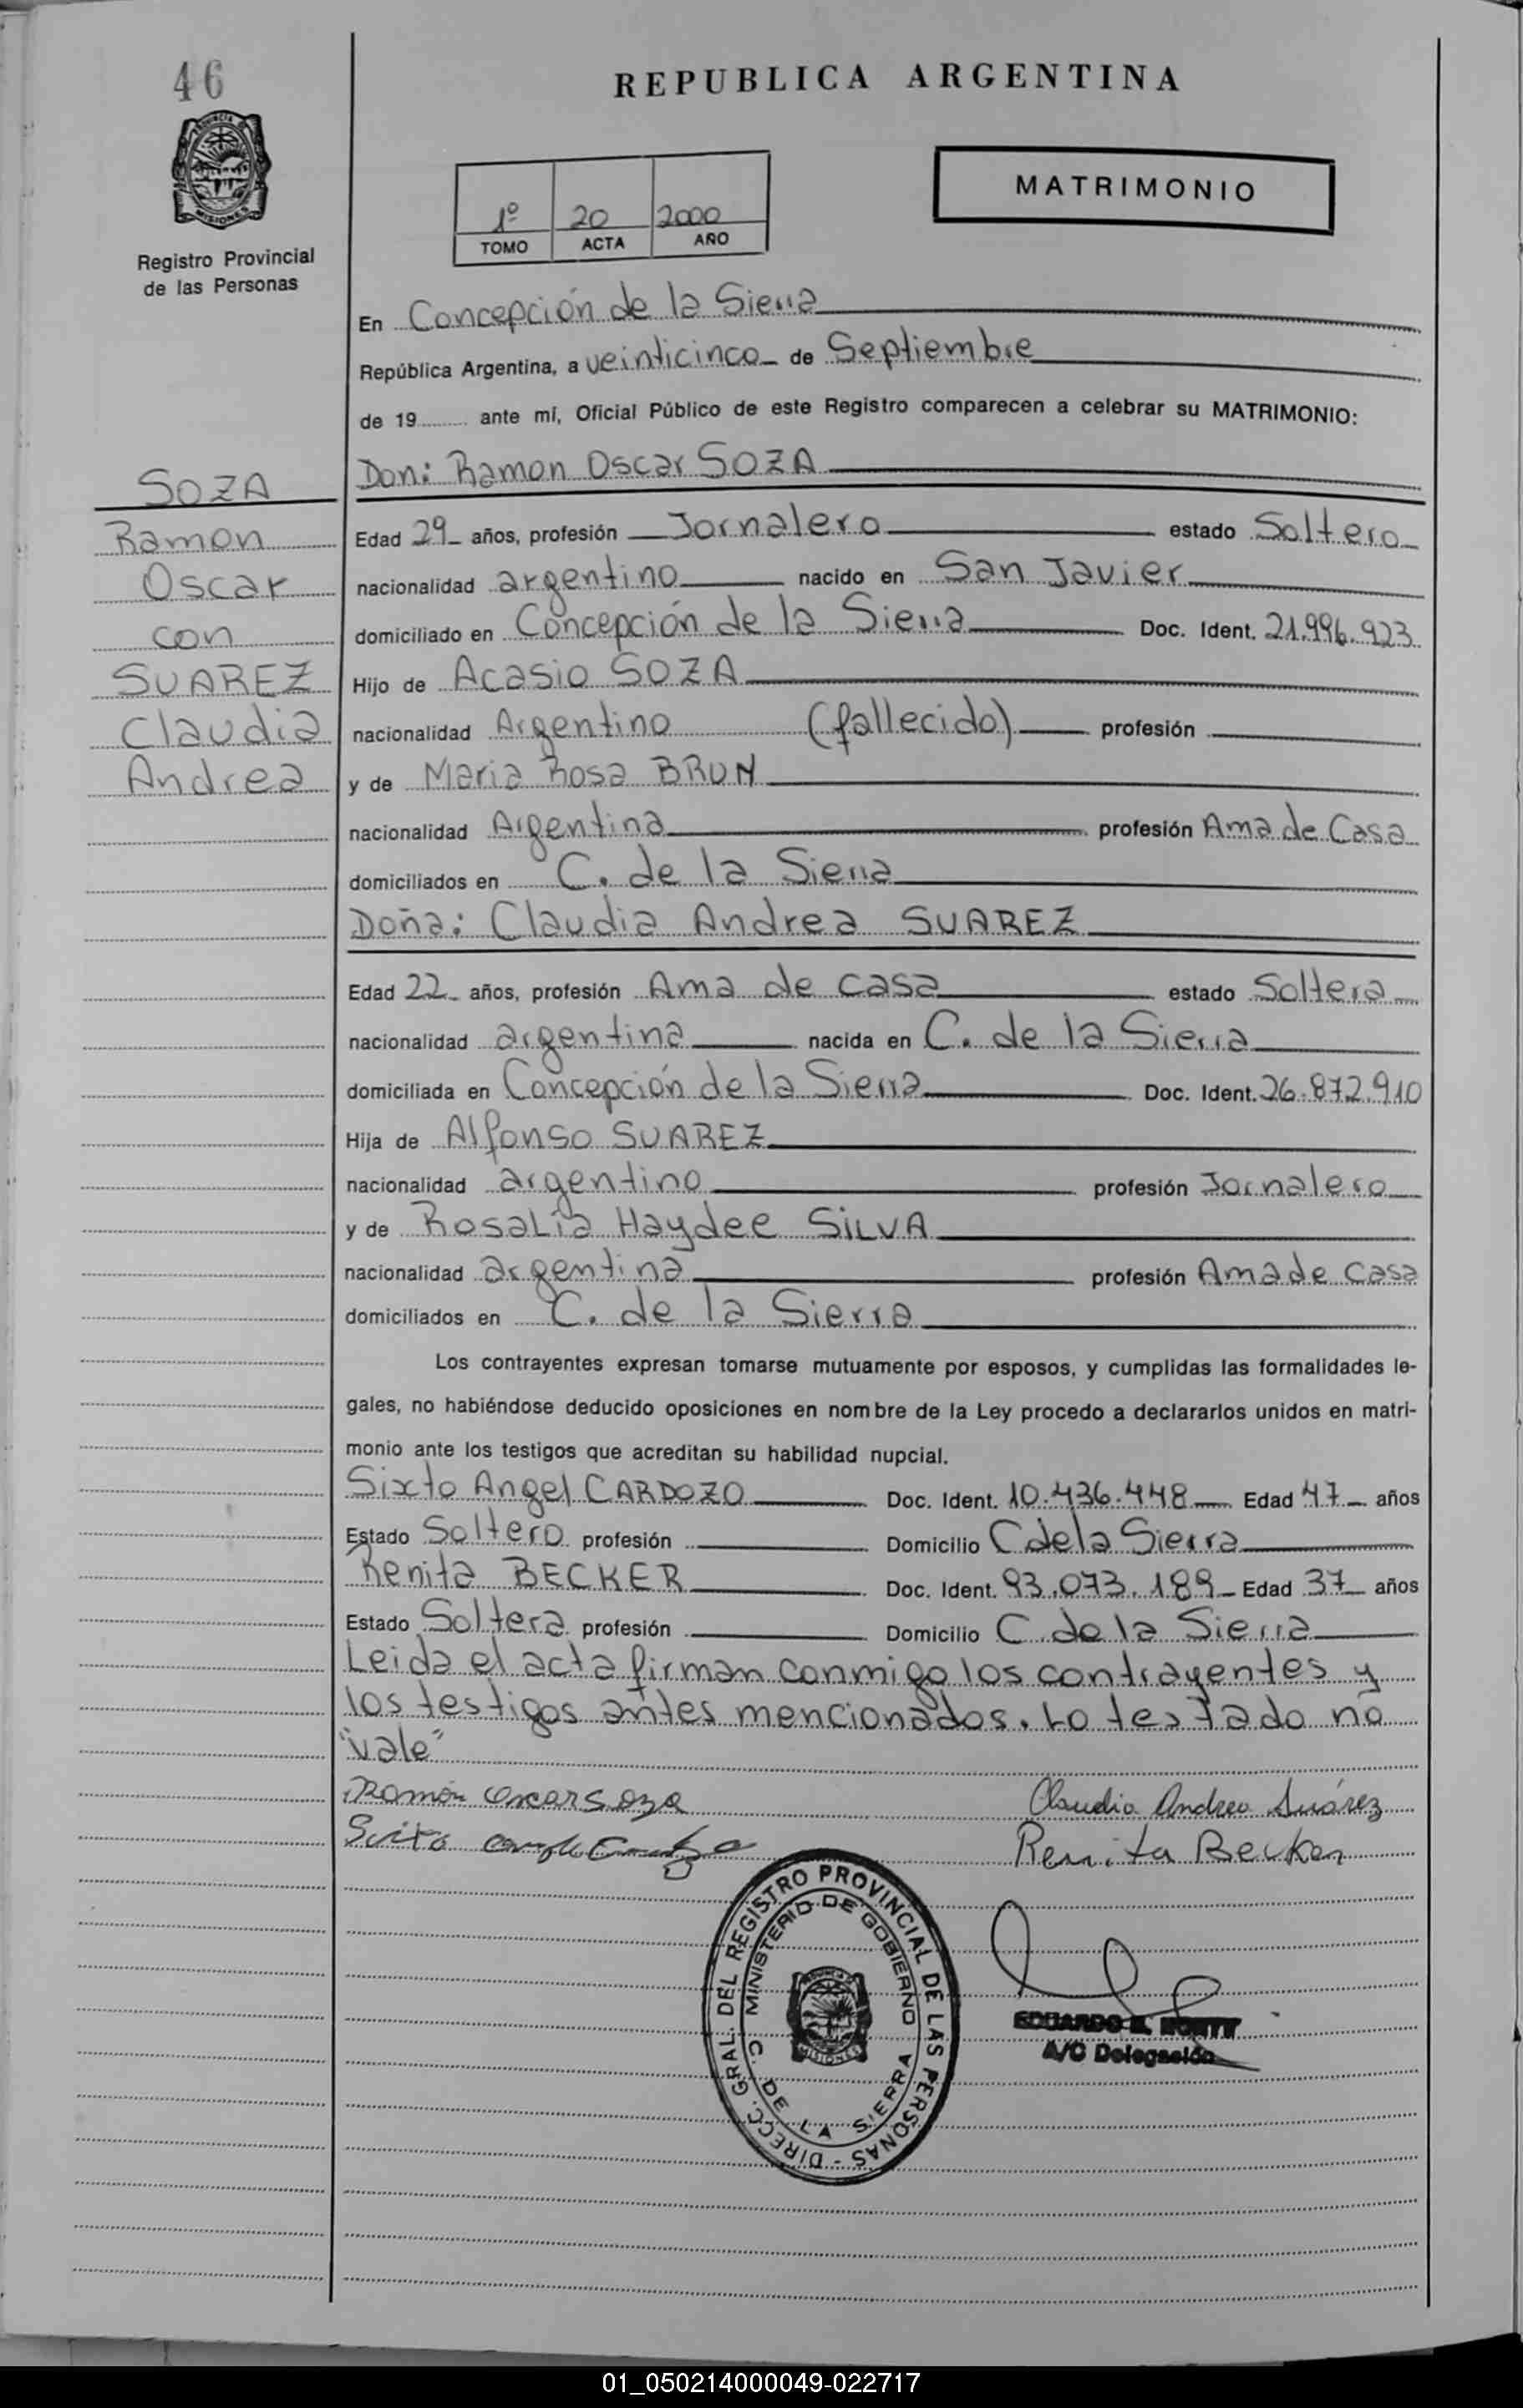 46
REPUBLICA ARGENTINA
MATRIMONIO
1º 20 2000
TOMO ACTA AÑO
PROVINCIA DE
MISIONES
Registro Provincial
de las Personas
En Concepción de la Sierra
República Argentina, a veinticinco de Septiembre
de 19......... ante mí, Oficial Público de este Registro comparecen a celebrar su MATRIMONIO:
Don: Ramon Oscar SOZA
SOZA
Ramon
Oscar
con
SUAREZ
Claudia
Andrea
Edad 29 años, profesión Jornalero estado Soltero
nacionalidad argentino nacido en San Javier
domiciliado en Concepción de la Sierra Doc. Ident. 21.996.923
Hijo de Acasio SOZA
nacionalidad Argentino (fallecido) profesión
y de Maria Rosa BRUN
nacionalidad Argentina profesión Ama de Casa
domiciliados en C. de la Sierra
Doña: Claudia Andrea SUAREZ
Edad 22 años, profesión Ama de casa estado Soltera
nacionalidad argentina nacida en C. de la Sierra
domiciliada en Concepción de la Sierra Doc. Ident. 26.872.910
Hija de Alfonso SUAREZ
nacionalidad argentino profesión Jornalero
y de Rosalía Haydee SILVA
nacionalidad argentina profesión Ama de casa
domiciliados en C. de la Sierra
Los contrayentes expresan tomarse mutuamente por esposos, y cumplidas las formalidades le-
gales, no habiéndose deducido oposiciones en nombre de la Ley procedo a declararlos unidos en matri-
monio ante los testigos que acreditan su habilidad nupcial.
Sixto Angel CARDOZO Doc. Ident. 10.436.448 Edad 47 años
Estado Soltero profesión Domicilio C de la Sierra
Renita BECKER Doc. Ident. 93.073.189 Edad 37 años
Estado Soltera profesión Domicilio C. de la Sierra
Leida el acta firman conmigo los contrayentes y
los testigos antes mencionados. Lo testado no
"vale"
Ramón Oscar Soza Claudia Andrea Suárez
Renita Becker
DIRECC. GRAL. DEL REGISTRO PROVINCIAL DE LAS PERSONAS -
MINISTERIO DE GOBIERNO
C. DE LA SIERRA
MISIONES
EDUARDO
A/C Delegación
01_050214000049-022717